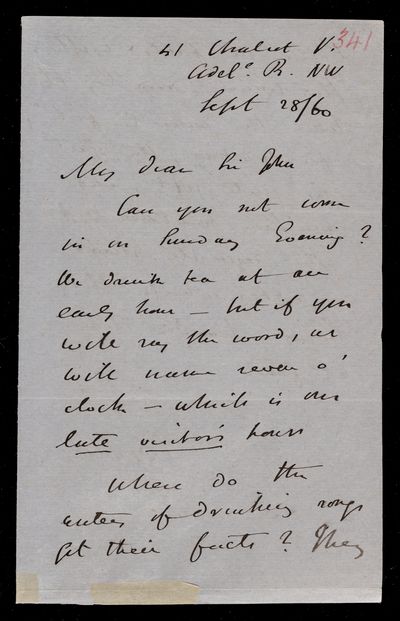 41 Chalcot V. 341
Adel.e R. NW
Sept 28/60
My dear Sir John
Can you not come
in on Sunday Evening?
We drink tea at an
early hour – but if you
will say the word, we
will name seven o'
clock – which is our
late visitor's hour
Where do the
writers of drinking songs
get their facts? They